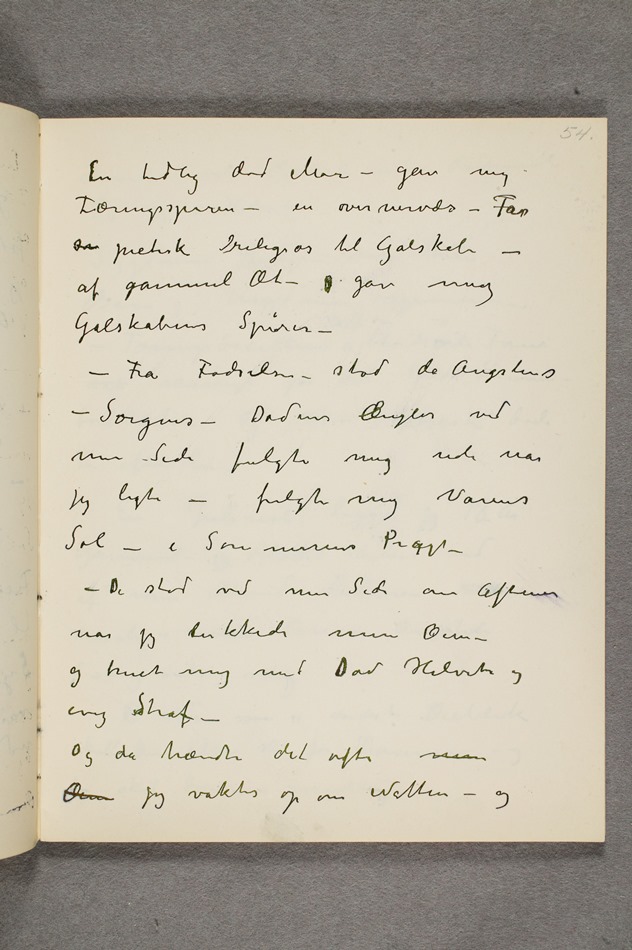 54.
En tidlig död Mor – gav mig
Tæringsspiren – en overnervøs – Far
pietisk religiøs til Galskab –
af gammel Æt – gav mig
Galskabens Spirer –
– Fra Fødselen – stod de Angstens
– Sorgens – Dødens Engler ved
min Side fulgte mig ude når
jeg legte – fulgte mig Vårens
Sol – i Sommerens Pragt –
– De stod ved min Side om Aftenen
når jeg lukkede mine Öine –
og truet mig med Død Helvete og
evig Straf –
Og da hændte det ofte min
Öine jeg våkte op om Natten – og